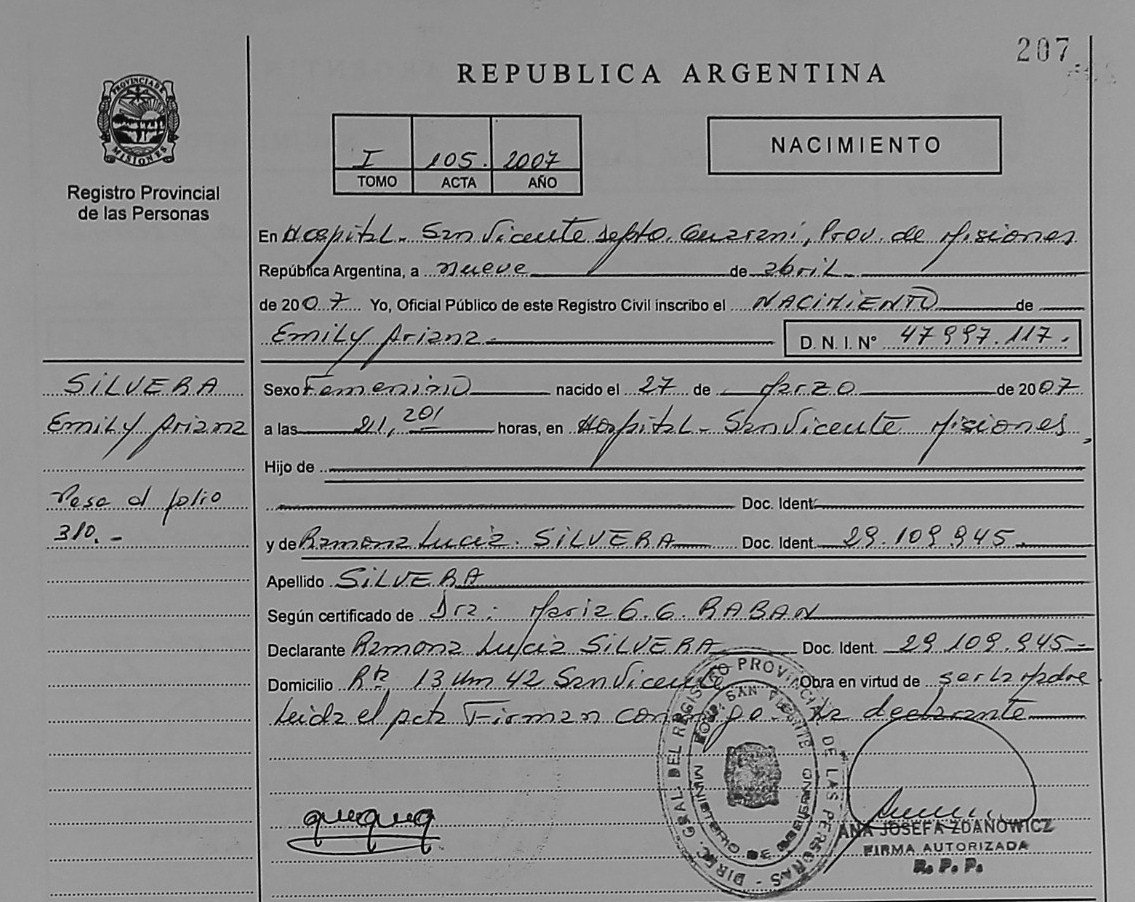 207
REPUBLICA ARGENTINA
PROVINCIA DE MISIONES
Registro Provincial
de las Personas
I 105. 2007
TOMO ACTA AÑO
NACIMIENTO
En Hospital - San Vicente Guaraní, Prov. de Misiones
República Argentina, a nueve de abril
de 2007 Yo, Oficial Público de este Registro Civil inscribo el NACIMIENTO de
Emily Ariana - D. N. I. Nº 47997.117.
SILVERA
Emily Ariana
Pasa al folio
310. -
Sexo Femenino nacido el 27 de Marzo de 2007
a las 21,20 horas, en Hospital - San Vicente Misiones
Hijo de
Doc. Ident
y de Ramona Lucia SILVERA Doc. Ident. 29.109.945.
Apellido SILVERA
Según certificado de Dra: Maria G. G. RABAN
Declarante Ramona Lucia SILVERA Doc. Ident. 29.109.945-
Domicilio Rta 13 Km 42 San Vicente Obra en virtud de ser la Madre
Leida el acta Firman la declarante
DIREC. GRAL DEL REGISTRO PROVINCIAL DE LAS PERSONAS
SAN VICENTE
MINISTERIO DE GOBIERNO
ANA JOSEFA ZDANOWICZ
FIRMA AUTORIZADA
R. P. P.